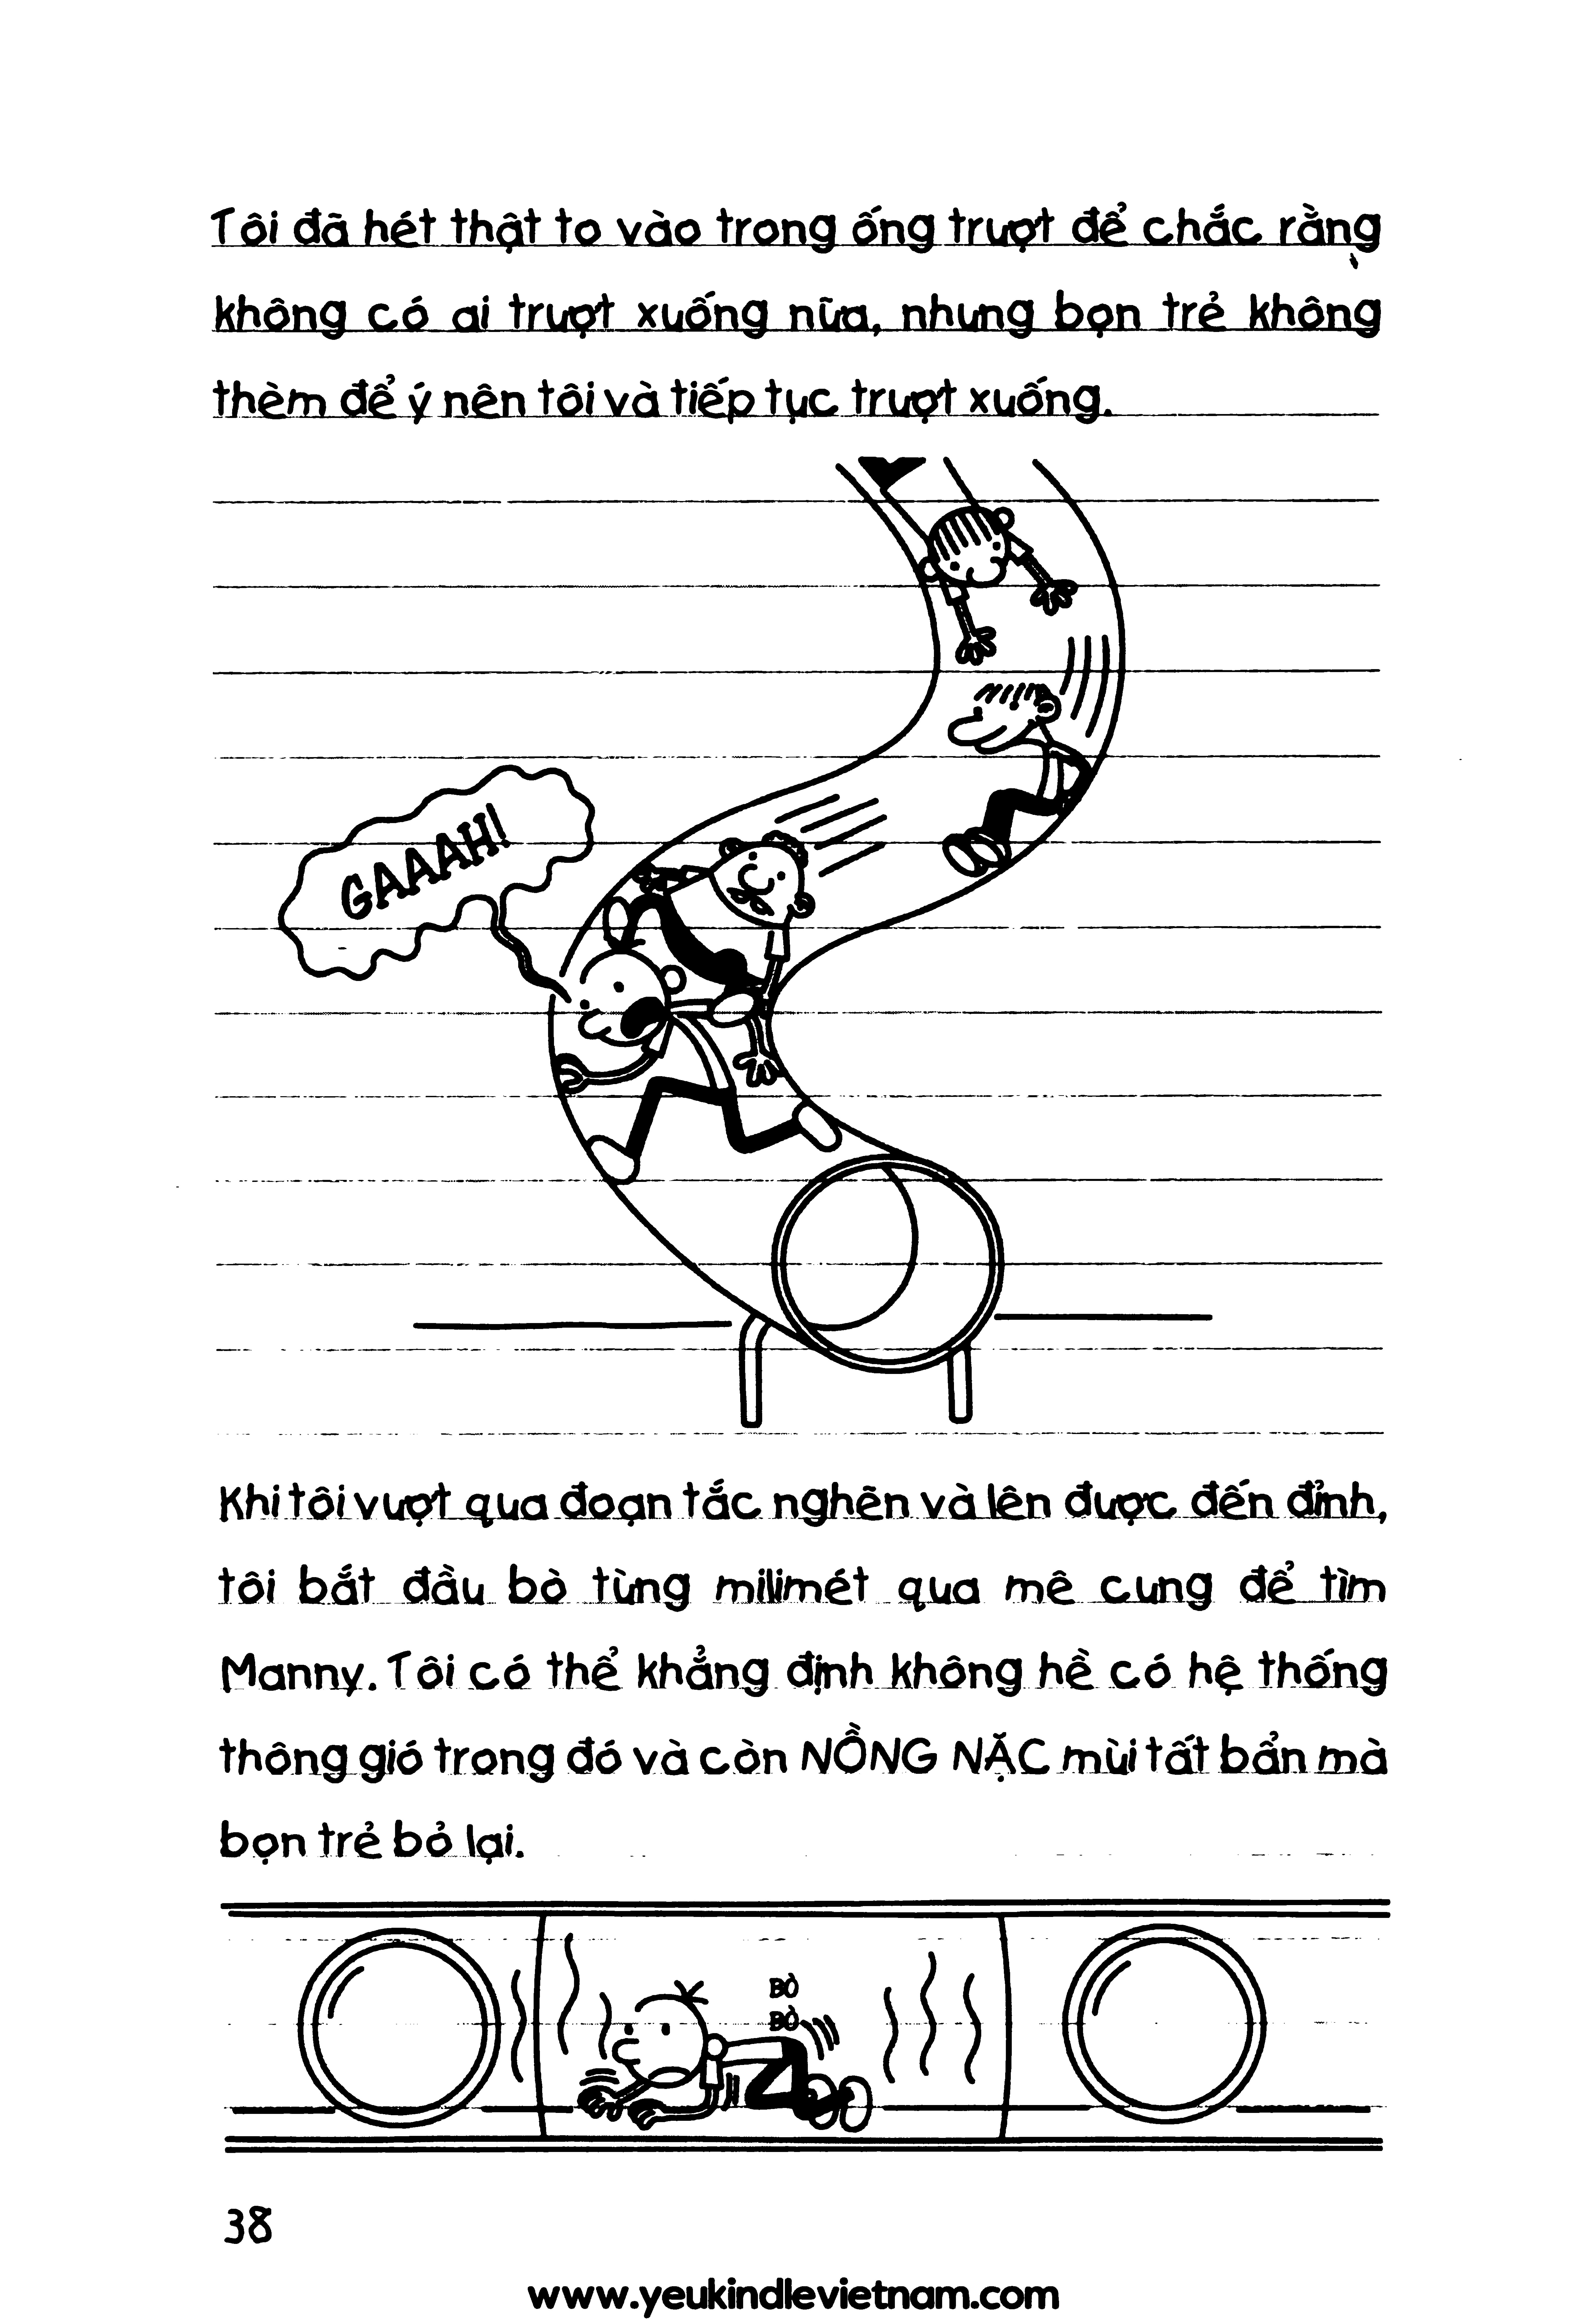 Tôi đã hét thật to vào trong ống trượt để chắc rằng
không có ai trượt xuống nữa, nhưng bọn trẻ không
thèm để ý nên tôi và tiếp tục trượt xuống.
GAAAH!
Khi tôi vượt qua đoạn tắc nghẽn và lên được đến đỉnh,
tôi bắt đầu bò từng milimét qua mê cung để tìm
Manny. Tôi có thể khẳng định không hề có hệ thống
thông gió trong đó và còn NỒNG NẶC mùi tất bẩn mà
bọn trẻ bỏ lại.
BÒ
BÒ
38
www.yeukindlevietnam.com